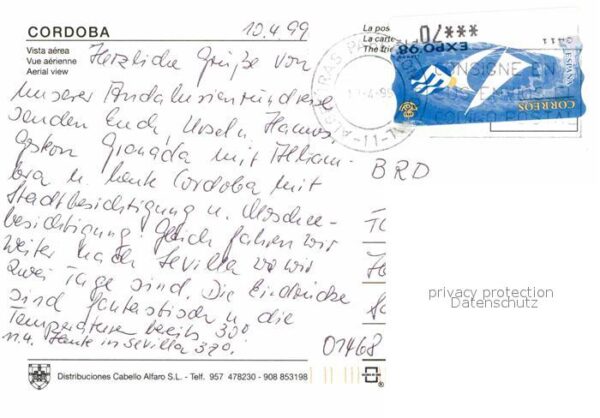 CORDOBA
10.4.99
Vista aérea
Vue aérienne
Aerial view
Herzliche Grüße von
unserer Andalusienrundreise
senden Euch, Ursel u. Hannes.
Gestern Granada mit Alham-
bra u. heute Cordoba mit
Stadtbesichtigung u. Moschee-
besichtigung. Gleich fahren wir
weiter nach Sevilla wo wir
zwei Tage sind. Die Eindrücke
sind fantastisch u. die
Temperaturen bereits 30°
11.4. Heute in Sevilla 32°.
01468
La pos
La carte
The frie
***70
EXPO'98
ESPAÑA
CORREOS
CONSIGNE EN
BRD
privacy protection
Datenschutz
Distribuciones Cabello Alfaro S.L. - Telf. 957 478230 - 908 853198